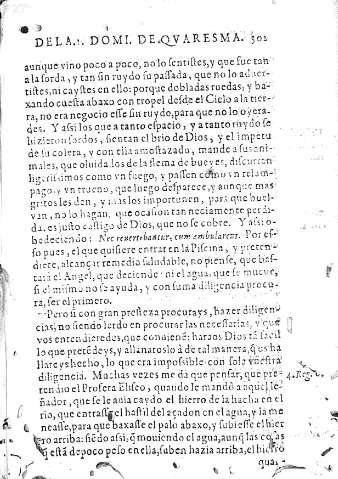 DE LA 1. DOMI. DE QVARESMA. 302
aunque vino poco a poco, no lo sentistes, y que fue tan
a la sorda, y tan sin ruydo su passada, que no lo aduer-
tistes, ni caystes en ello: porque dobladas ruedas, y ba-
xando cuesta abaxo con tropel desde el Cielo a la tier-
ra, no era negocio esse sin ruydo, para que no lo oyera-
des. Y assi los que a tanto espacio, y a tanto ruydo se
hizieron sordos, sientan el brio de Dios, y el impetu
de su colera, y con ella amostazado, mande a sus ani-
males, que oluidados de la flema de bueyes, discurran
ligerissimos como vn fuego, y passen como vn relam-
pago, y vn trueno, que luego desparece, y aunque mas
gritos les den, y mas los importunen, para que buel-
van, no lo hagan, que ocasion tan neciamente perdi-
da, es justo castigo de Dios, que no se cobre. Y assi o-
bedeciendo: Nec reuertebantur, cum ambularent. Por es-
so pues, el que quisiere entrar en la Piscina, y preten-
diere, alcançar remedio saludable, no piense, que bas-
tará el Angel, que deciende ni el agua, que se mueue,
si el mismo no se ayuda, y con suma diligencia procu-
ra, ser el primero.
Pero si con gran presteza procurays, hazer diligen-
cias, no siendo lerdo en procurar las necessarias, y que
vos entendieredes, que conuiene: haraos Dios tā facil
lo que pretēdeys, y allanaroslo à de tal manera, q̃ os ha
llareys hecho, lo que era impossible con sola vuestra
diligencia. Muchas vezes me da que pensar, que pre-
tendio el Profeta Eliseo, quando le mandò a aquel le-
4. Reg.
ñador, que se le auia caydo el hierro de la hacha en el
rio, que entrasse el hastil del açadon en el agua, y la me
neasse, para que baxasse el palo abaxo, y subiesse el hier
ro arriba: siēdo assi, q̃ mouiendo el agua, aun las cosas
q̃ està de poco peso en ella, suben hazia arriba, el hierro
qua-